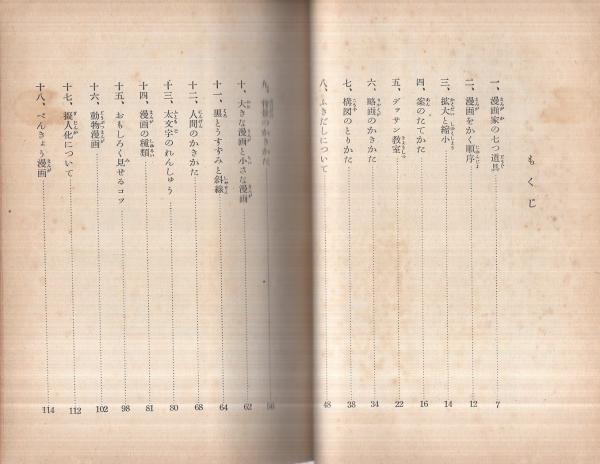 もくじ
一、漫画家の七つ道具 7
二、漫画をかく順序 12
三、拡大と縮小 14
四、案のたてかた 16
五、デッサン教室 22
六、略画のかきかた 34
七、構図のとりかた 38
八、ふきだしについて 48
九、背景のかきかた 56
十、大きな漫画と小さな漫画 62
十一、黒とうすずみと斜線 64
十二、人間のかきかた 68
十三、太文字のれんしゅう 80
十四、漫画の種類 81
十五、おもしろく見せるコツ 98
十六、動物漫画 102
十七、擬人化について 112
十八、べんきょう漫画 114